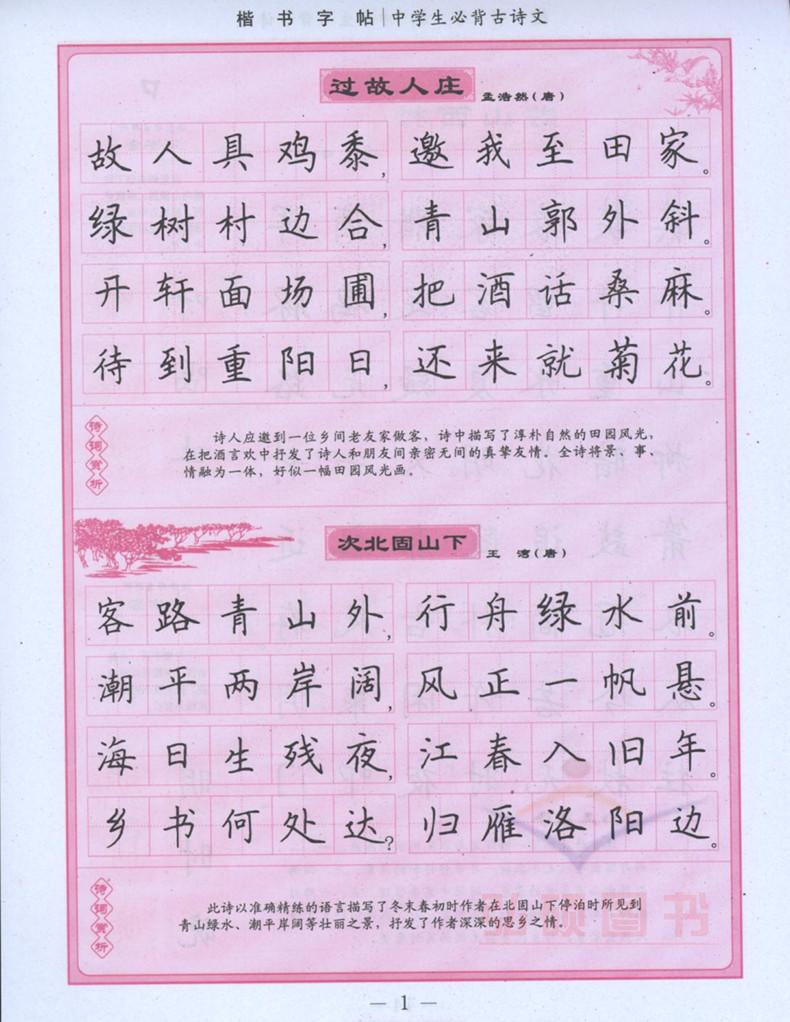 楷书字 帖|中学生必背古诗文
过故人庄 孟浩然(唐)
故人具鸡黍,邀我至田家。
绿树村边合,青山郭外斜。
开轩面场圃,把酒话桑麻。
待到重阳日,还来就菊花。
诗词赏析
诗人应邀到一位乡间老友家做客,诗中描写了淳朴自然的田园风光,
在把酒言欢中抒发了诗人和朋友间亲密无间的真挚友情。全诗将景、事、
情融为一体,好似一幅田园风光画。
次北固山下 王 湾(唐)
客路青山外,行舟绿水前。
潮平两岸阔,风正一帆悬。
海日生残夜,江春入旧年。
乡书何处达?归雁洛阳边。
诗词赏析
此诗以准确精练的语言描写了冬末春初时作者在北固山下停泊时所见到
青山绿水、潮平岸阔等壮丽之景,抒发了作者深深的思乡之情。
— 1 —